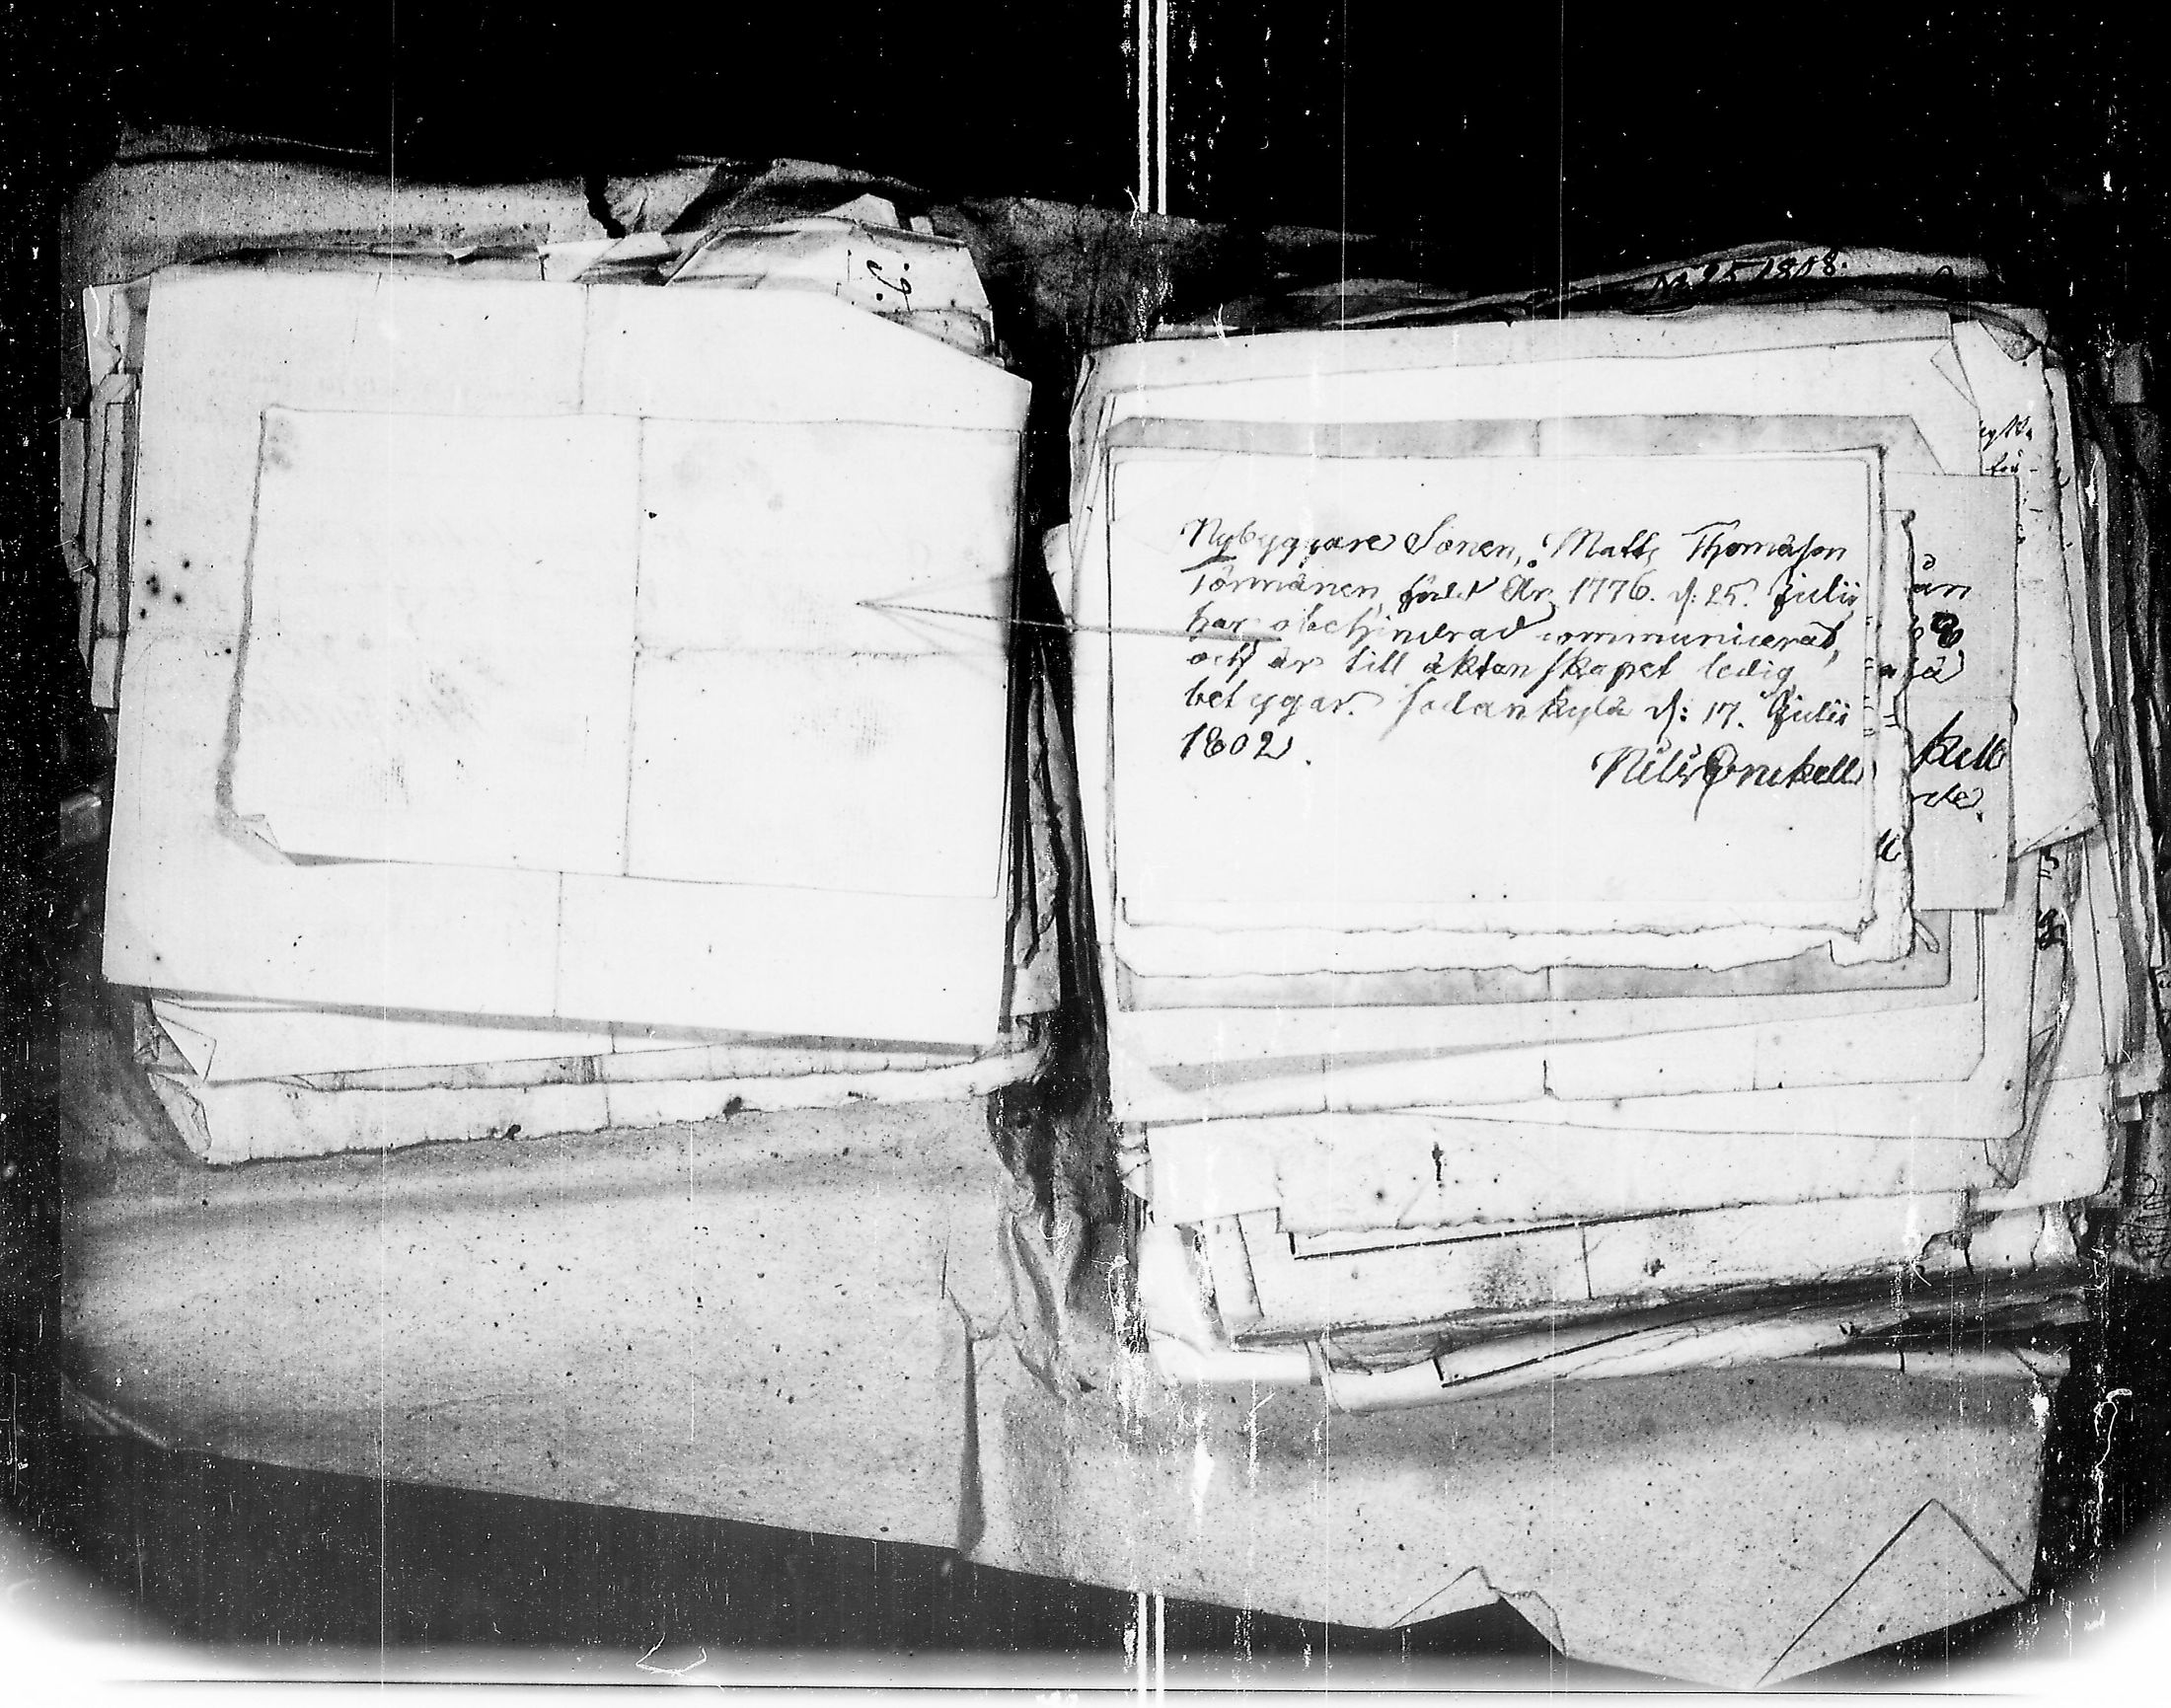 No 25 1808.
Nybyggare Sonen, Matts Thomasson
Törmänen, född År 1776. d: 25. Julii
har obehindrad communicerat,
och är till äktenskapet ledig
betygar. Sodankylä d: 17. Julii
1802.
Nils Fonckell